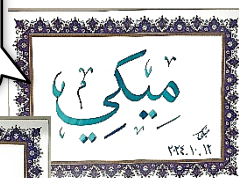 ميكي
٢٠٢٤.١٠.١٢